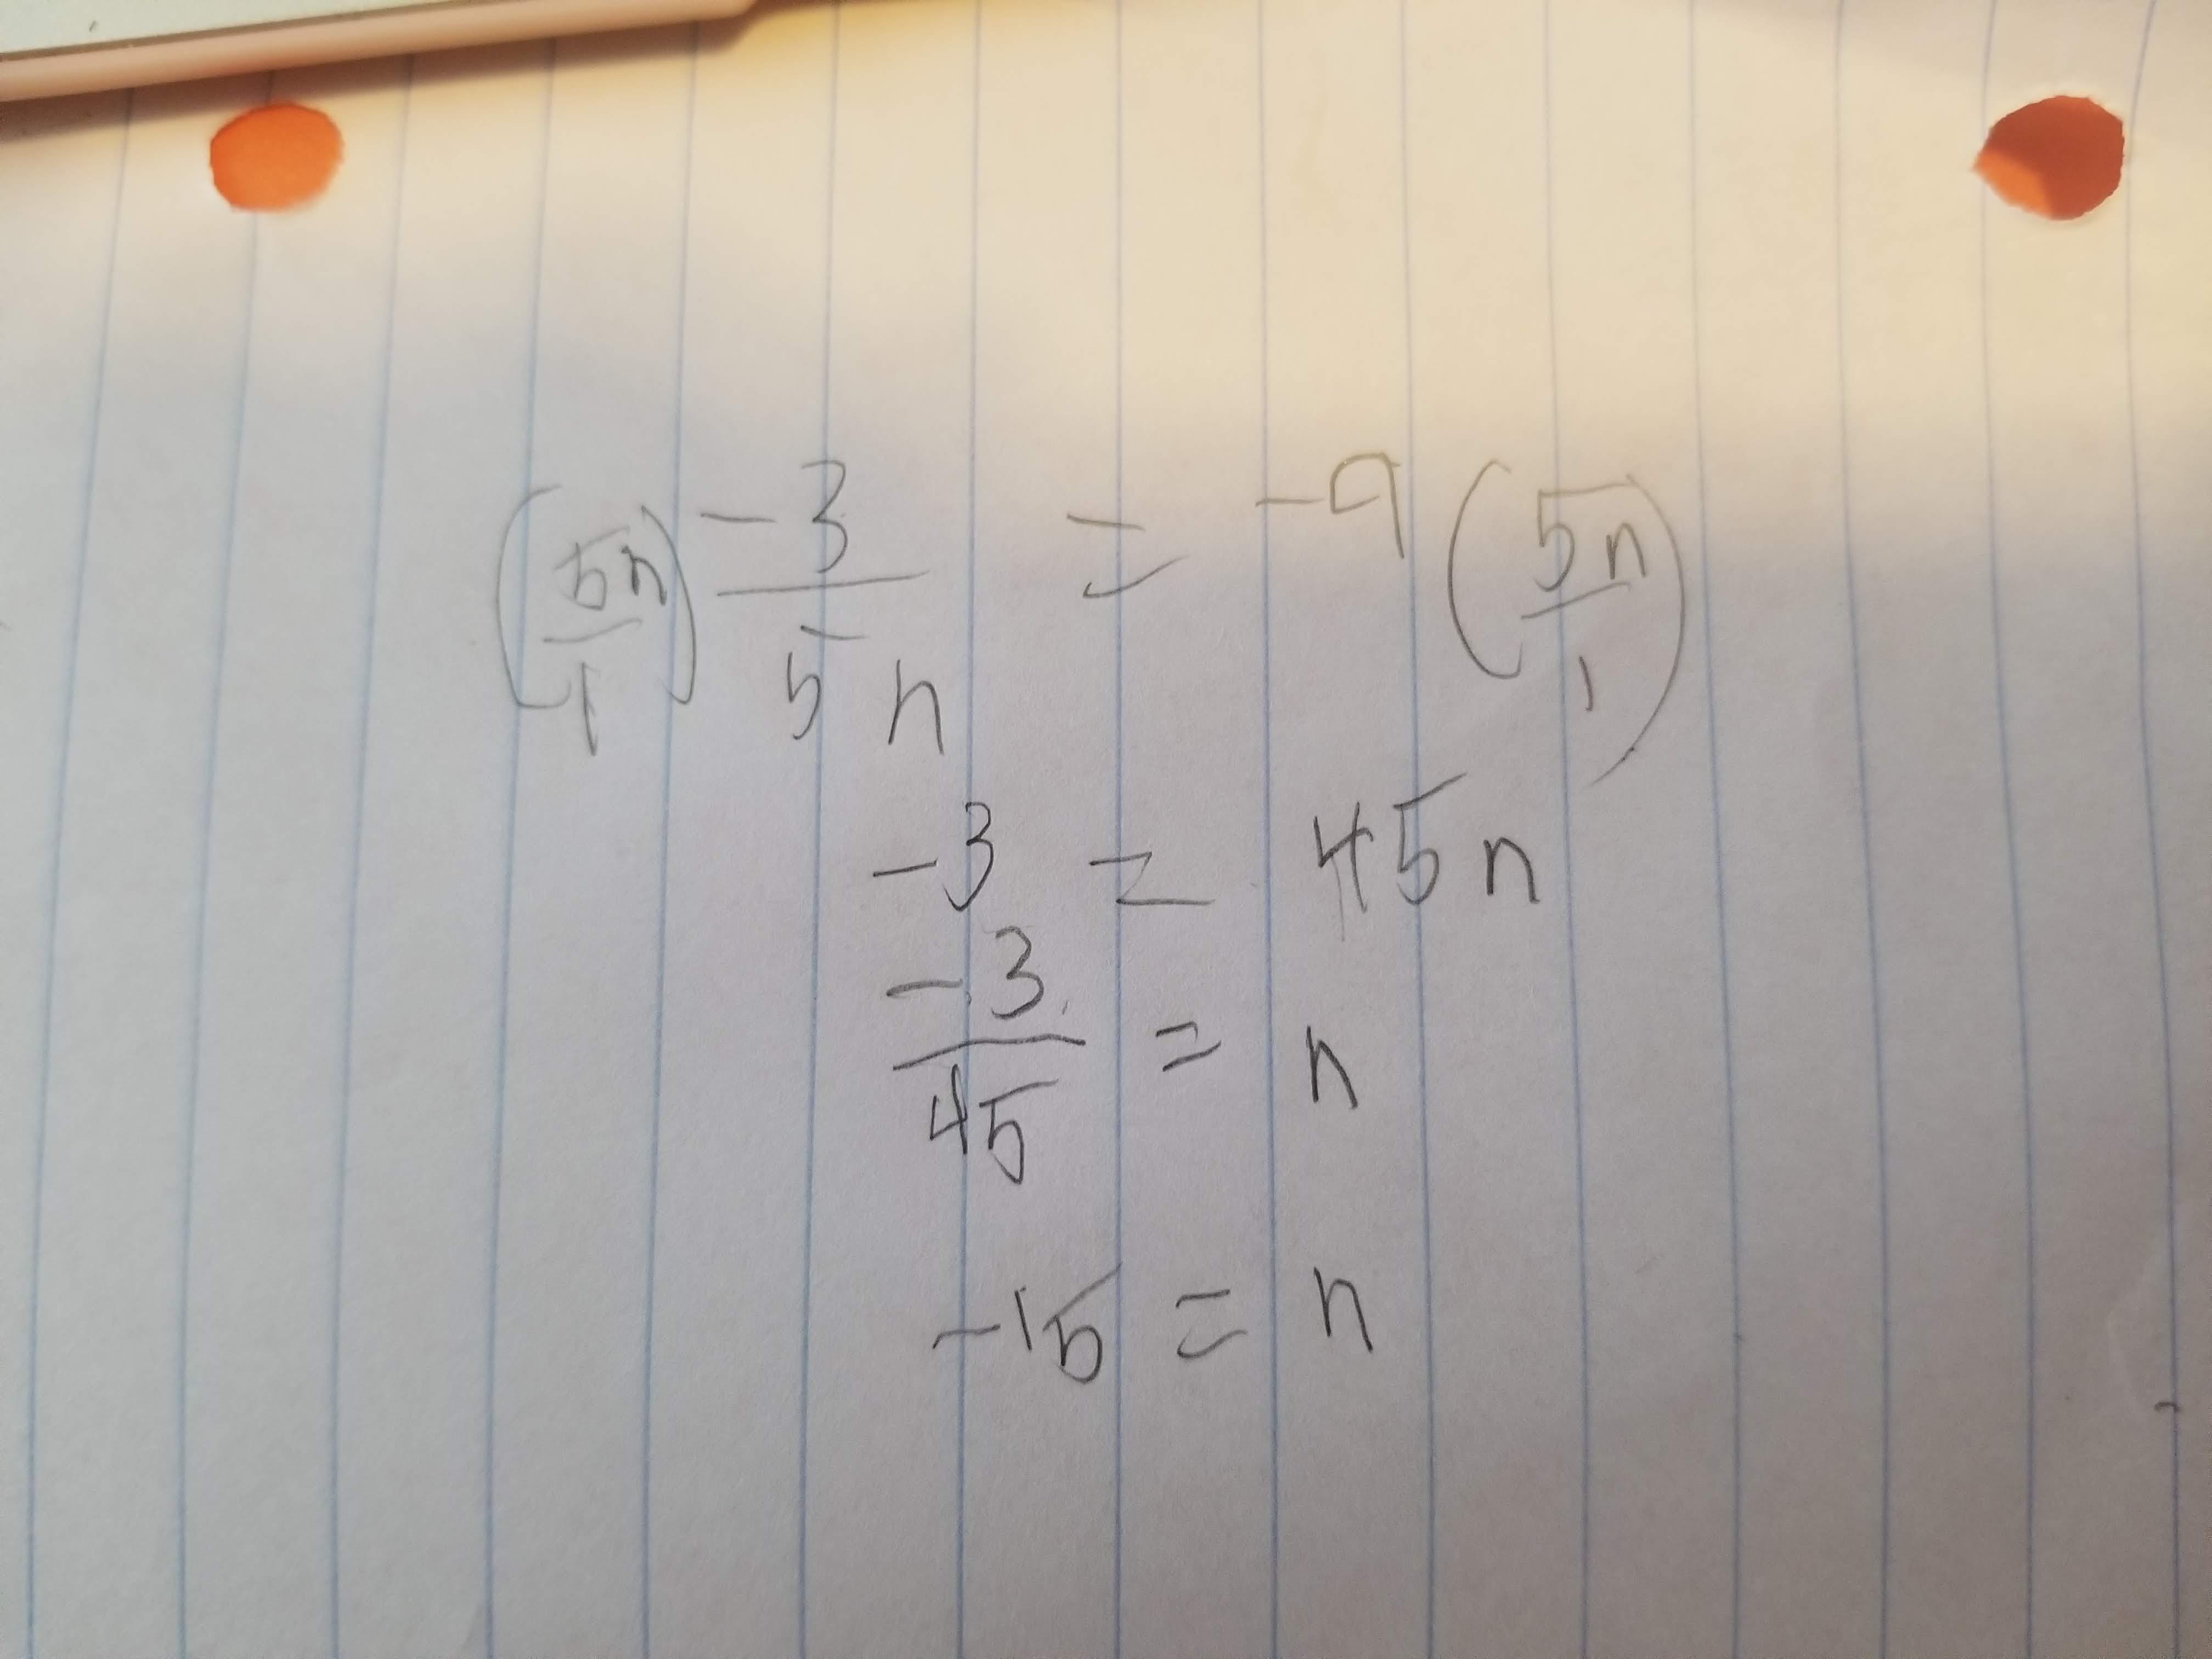 (5n/1) -3/5n = -9 (5n/1)
-3 = 45n
-3/45 = n
-15 = n